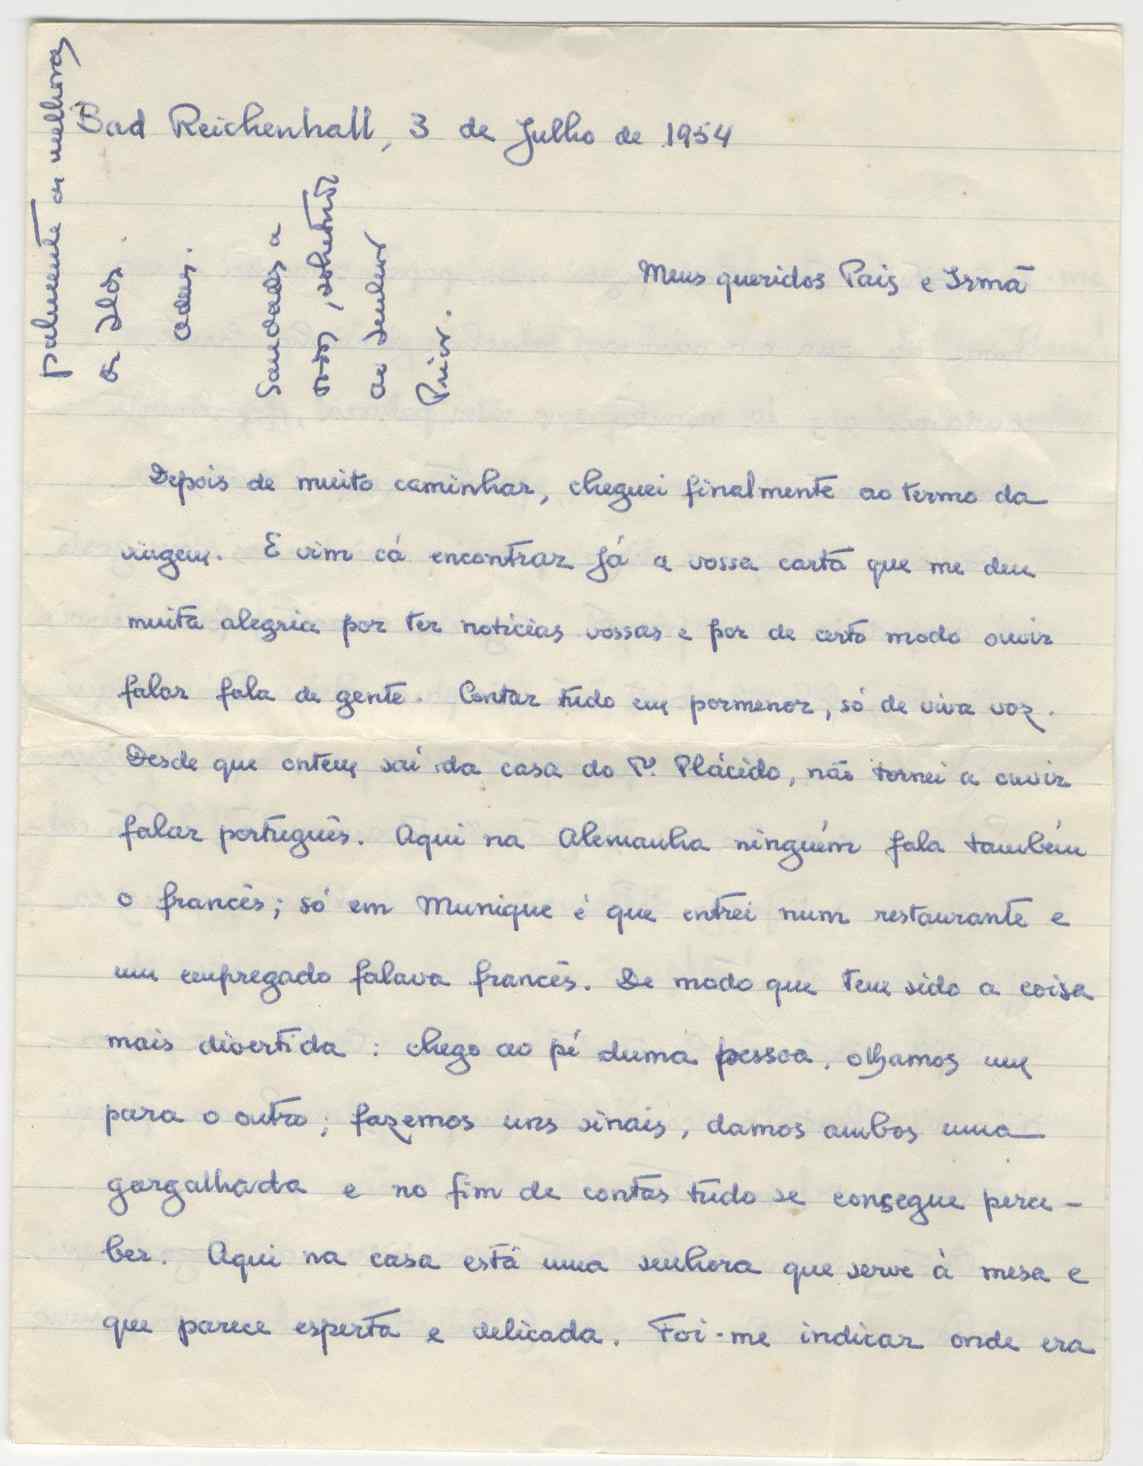 Bad Reichenhall, 3 de Julho de 1954
Meus queridos Pais e Irmã
Depois de muito caminhar, cheguei finalmente ao termo da
viagem. E vim cá encontrar já a vossa carta que me deu
muita alegria por ter notícias vossas e por de certo modo ouvir
falar fala de gente. Contar tudo em pormenor, só de viva voz.
Desde que ontem saí da casa do P. Plácido, não tornei a ouvir
falar português. Aqui na Alemanha ninguém fala também
o francês; só em Munique é que entrei num restaurante e
um empregado falava francês. De modo que tem sido a coisa
mais divertida: chego ao pé duma pessoa, olhamos um
para o outro; fazemos uns sinais, damos ambos uma
gargalhada e no fim de contas tudo se consegue perce-
ber. Aqui na casa está uma senhora que serve à mesa e
que parece esperta e delicada. Foi-me indicar onde era
palmente as melhoras
Adeus.
Saudades a
todos, sobretudo
ao Senhor
Prior.